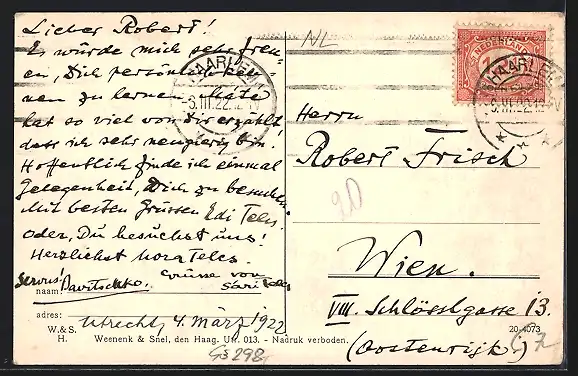 Lieber Robert!
Es würde mich sehr freu-
en, Dich persönlich ken-
nen zu lernen
hat so viel von Dir erzählt
dass ich sehr neugierig bin!
Hoffentlich finde ich einmal
Gelegenheit, Dich zu besuchen.
Mit besten Grüssen Edi Teles.
oder, Du besuchst uns!
Herzlichst Nora Teles.
Servus! Grüsse von
naam: Sári Teles
adres: Utrecht, 4. März 1922
W. & S.
H. Weenenk & Snel, den Haag. Uitg. 013. - Nadruk verboden.
Gs 298
NL
NEDERLAND
HAARLEM
6.III.22.12-V
HAARLEM
6.III.22.12-V
Herrn
Robert Frisch
20
Wien.
VIII. Schlösslgasse 13.
20-4073
(Oostenrijk)